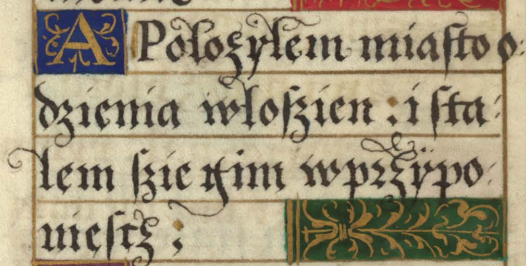 A Polozylem miaſto o:
dzienia wloſzien : i ſta:
lem ſzie gim wprzÿpo:
wieſtz ;